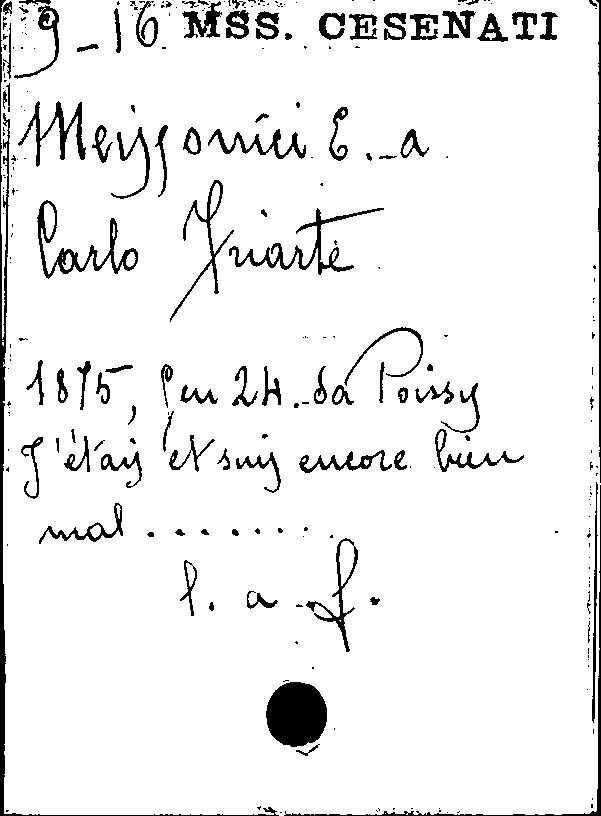 9-16 MSS. CESENATI
Meissonier E. a
Carlo Yriarte
1875, Gen 24. da Poissy
J'étais et suis encore bien
mal ........
l. a f.